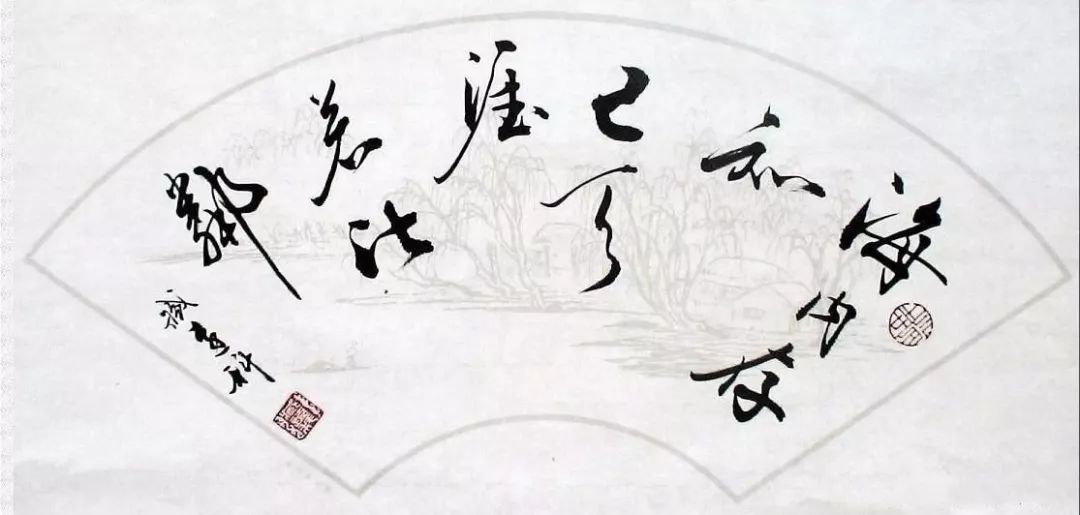 海
内存
知
己天
涯
若比
鄰